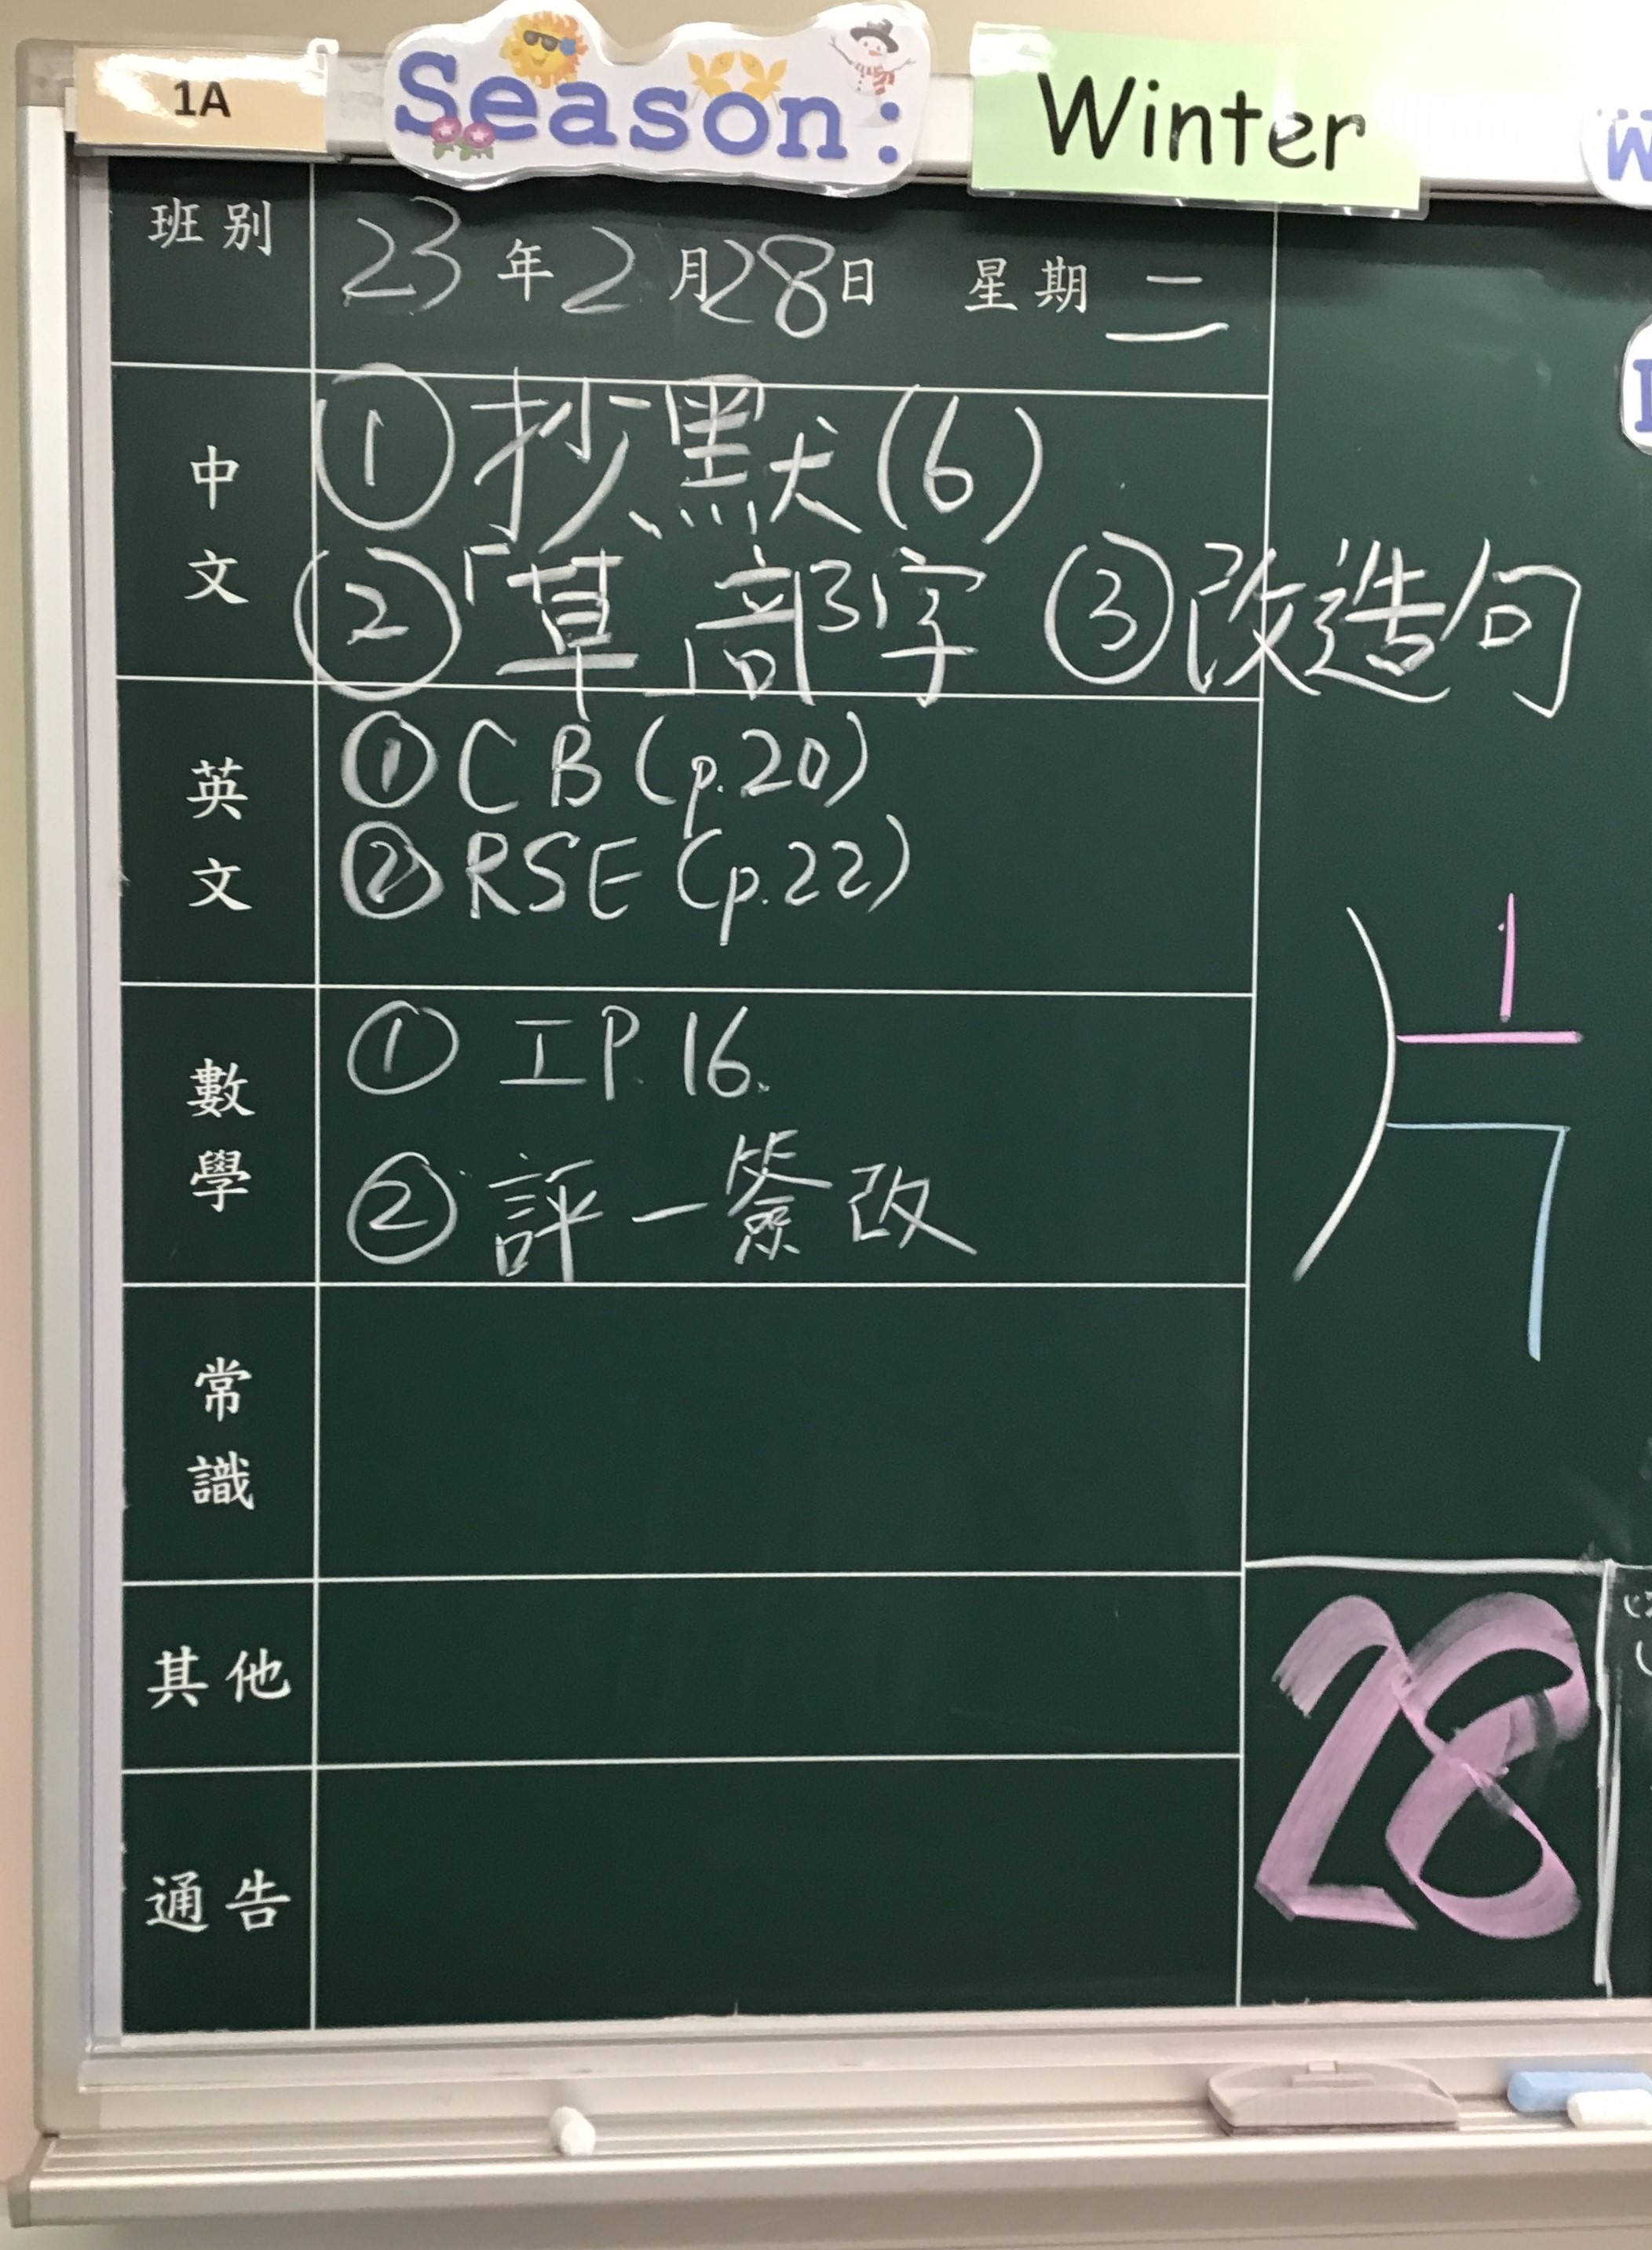 1A
Season: Winter
班別
23年2月28日 星期二
中文
①抄默(6)
②「草」部字 ③改造句
英文
①CB(p.20)
②RSE(p.22)
數學
① 工P.16.
② 評一簽改
常識
其他
通告
28